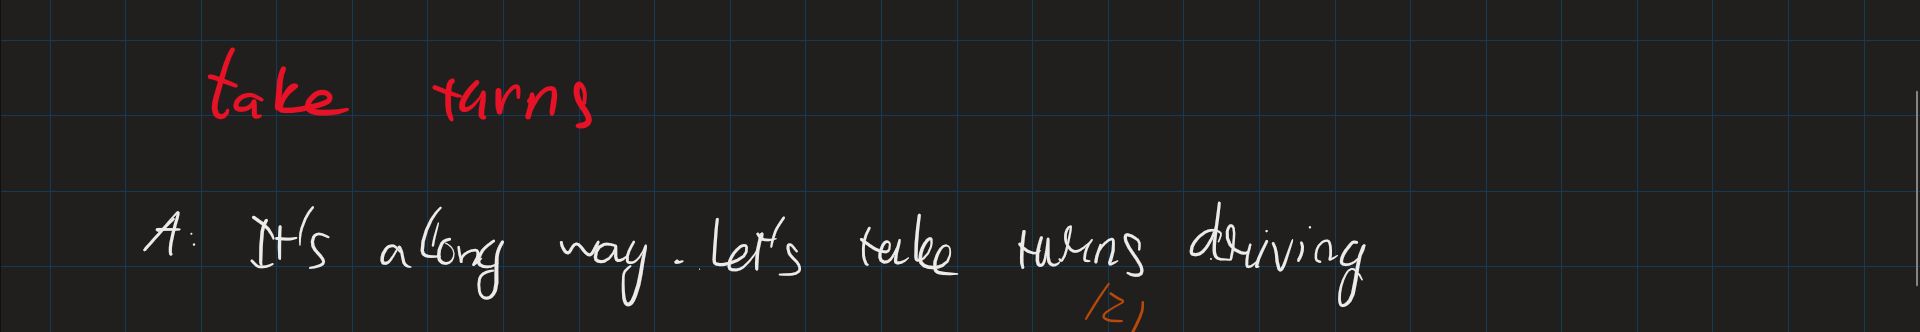 take turns
A: It's a long way. Let's take turns driving
/z/